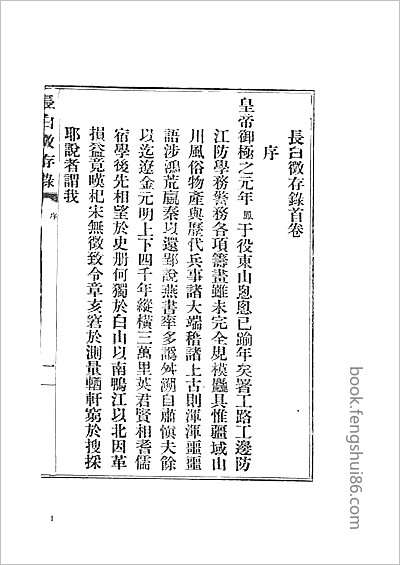 長白徵存錄首卷
序
皇帝御極之元年鳳于役東山悤悤已踰年矣署工路工邊防
江防學務警務各項籌畫雖未完全規模麤具惟疆域山
川風俗物產與歷代兵事諸大端稽諸上古則渾渾噩噩
語涉鴻荒嬴秦以還郢說燕書率多譌舛溯自肅愼夫餘
以迄遼金元明上下四千年縱橫三萬里英君賢相耆儒
宿學後先相望於史册何獨於白山以南鴨江以北因革
損益竟嘆杞宋無徵致令章亥窘於測量輶軒窮於搜採
耶說者謂我
長白徵存錄
序
一
1
book.fengshui86.com